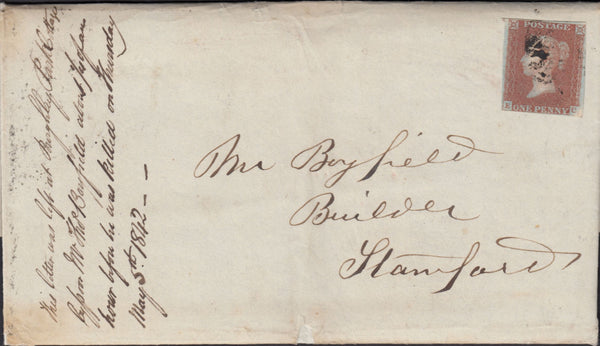 This letter was left at Burghley Park Lodge
for Mr Thos Boyfield about half an
hour before he was killed on Thursday
May 5th 1842 - -
POSTAGE
ONE PENNY
Mr Boyfield
Builder
Stamford